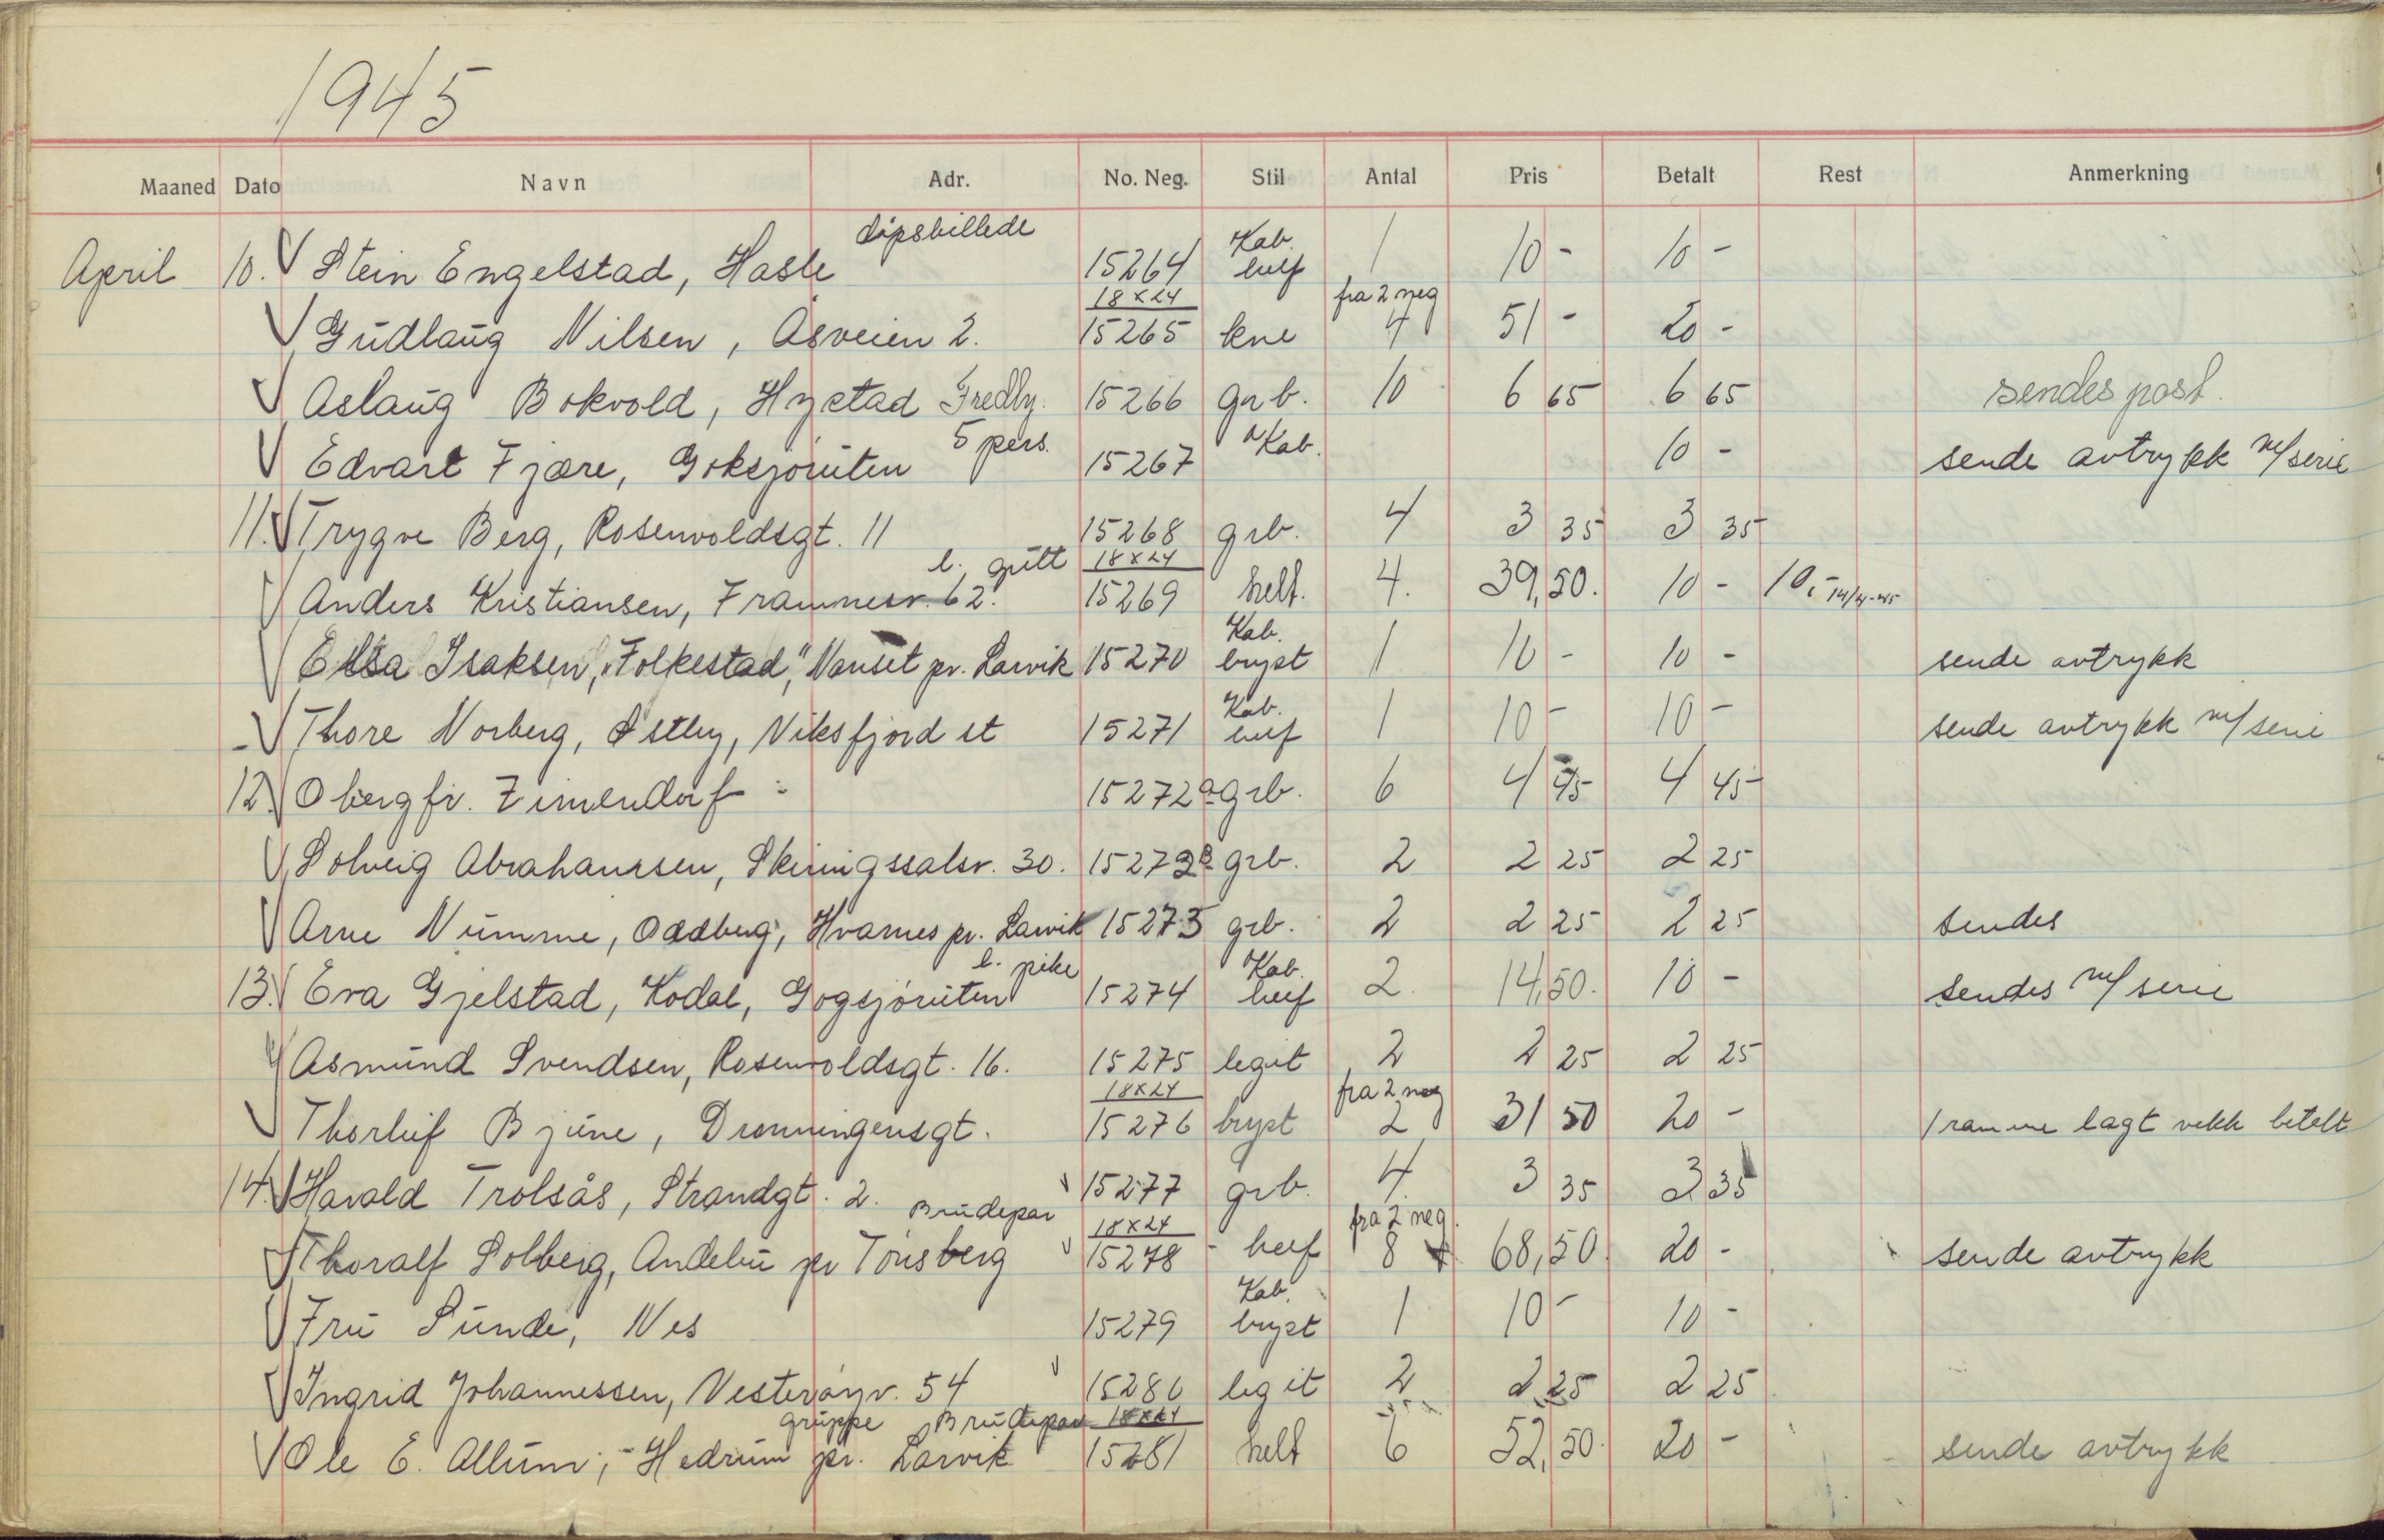 1945
Maaned Dato Navn Adr. No. Neg. Stil Antal Pris Betalt Rest Anmerkning
dåpsbillede Kab.
April 10. Stein Engelstad, Hasle 15264 1 10 - 10 -
18x24 fra 2 neg
Gudlaug Nilsen, Åsveien 2. 15265 kne 4 51 - 20 -
Aslaug Bokvold, Hystad Fredby. 15266 grb. 10 6 65 6 65 sendes post.
5 pers. Kab.
Edvart Fjære, Goksjøruten 15267 10 - sende avtrykk m/serie
11. Trygve Berg, Rosenvoldsgt. 11 15268 grb. 4 3 35 3 35
l. gutt 18x24
Anders Kristiansen, Framnesv. 62. 15269 helf. 4. 39,50. 10 - 10,- 14/4-45
Kab.
Elsa Isaksen, "Folkestad", Nanset pr. Larvik 15270 bryst 1 10 - 10 - sende avtrykk
Kab.
Thore Norberg, Østby, Viksfjord st 15271 1 10 - 10 - sende avtrykk m/serie
12. Obergfr. Zimendorf 15272a grb. 6 4 45 4 45
Solveig Abrahamsen, Skiringssalsv. 30. 15272B grb. 2 2 25 2 25
Arne Numme, Oddberg, Hvarnes pr. Larvik 15273 grb. 2 2 25 2 25 sendes
l. pike Kab.
13. Eva Gjelstad, Kodal, Gogsjøruten 15274 2. 14,50. 10 - sendes m/serie
Asmund Svendsen, Rosenvoldsgt. 16. 15275 legit 2 2 25 2 25
18x24 fra 2 neg
Thorleif Bjune, Dronningensgt. 15276 bryst 2 31 50 20 - 1 ramme lagt vekk betalt
14. Harald Trolsås, Strandgt. 2. 15277 grb. 4. 3 35 3 35
Brudepar 18x24 fra 2 neg.
Thoralf Solberg, Andebu pr Tønsberg 15278 - 8 68,50 20 - sende avtrykk
Kab.
Fru Sunde, Nes 15279 bryst 1 10 - 10 -
Ingrid Johannessen, Vesterøyv. 54 15280 legit 2 2 25 2 25
gruppe Brudepar 18x24
Ole E. Allum, Hedrum pr. Larvik 15281 helt 6 52,50. 20 - sende avtrykk